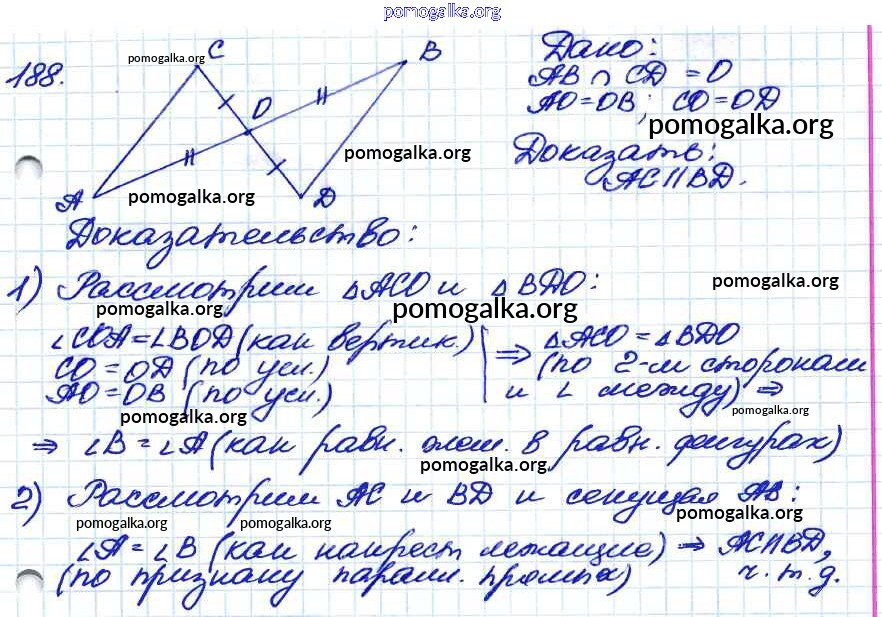 pomogalka.org
188.
pomogalka.org
C
B
O
A
D
pomogalka.org
pomogalka.org
Дано:
AB ∩ CD = O
AO = OB; CO = OD
pomogalka.org
Доказать:
AC || BD.
Доказательство:
1) Рассмотрим △ACO и △BDO:
pomogalka.org
pomogalka.org
pomogalka.org
∠COA = ∠BOD (как вертик.)
CO = OD (по усл.)
AO = OB (по усл.)
⇒ △ACO = △BDO
(по 2-м сторонам
и ∠ между) ⇒
pomogalka.org
pomogalka.org
⇒ ∠B = ∠A (как равн. элем. в равн. фигурах)
pomogalka.org
2) Рассмотрим AC и BD и секущая AB:
pomogalka.org
pomogalka.org
pomogalka.org
∠A = ∠B (как накрест лежащие) ⇒ AC || BD,
(по признаку паралл. прямых) ч.т.д.